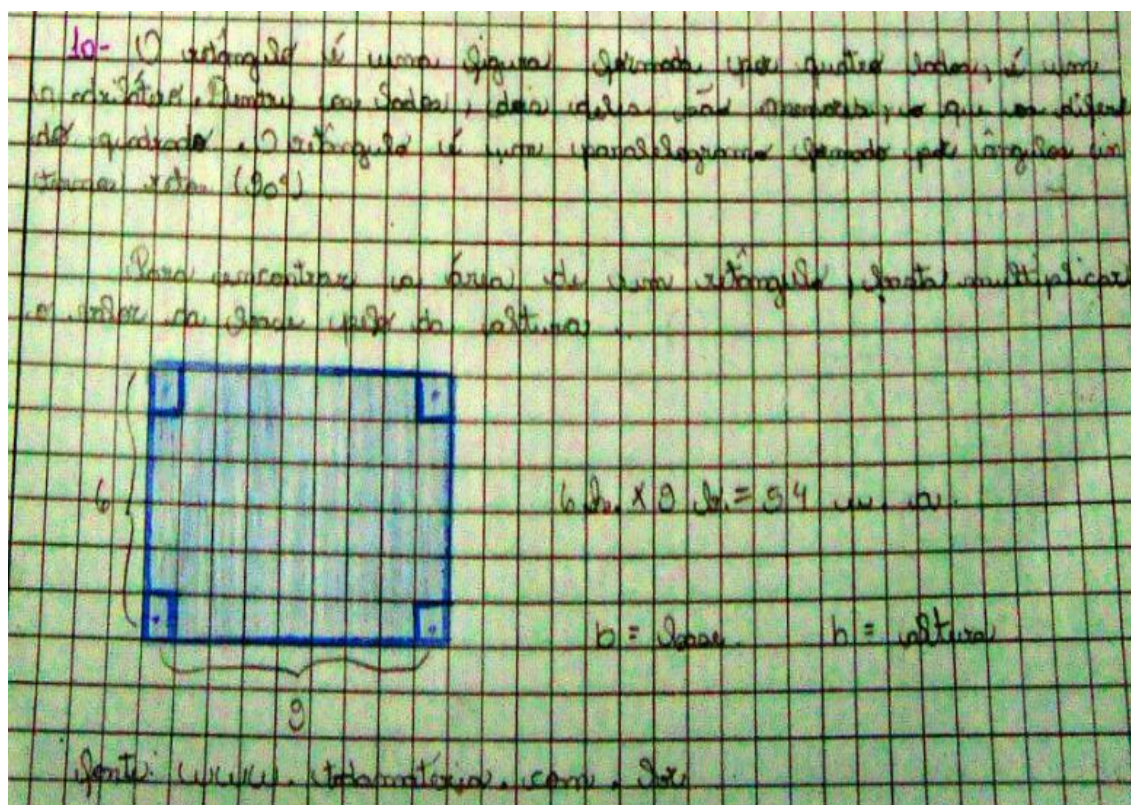 10- O retângulo é uma figura formada por quatro lados, é um
quadrilátero. Dentre os lados, dois deles são menores, o que os difere
do quadrado. O retângulo é um paralelogramo formado por ângulos in
ternos retos (90°)
Para encontrar a área de um retângulo, basta multiplicar
o valor da base pelo da altura.
6
6 h. x 9 b. = 54 u. a.
b = base. h = altura
9
fonte: www.todamateria.com.br